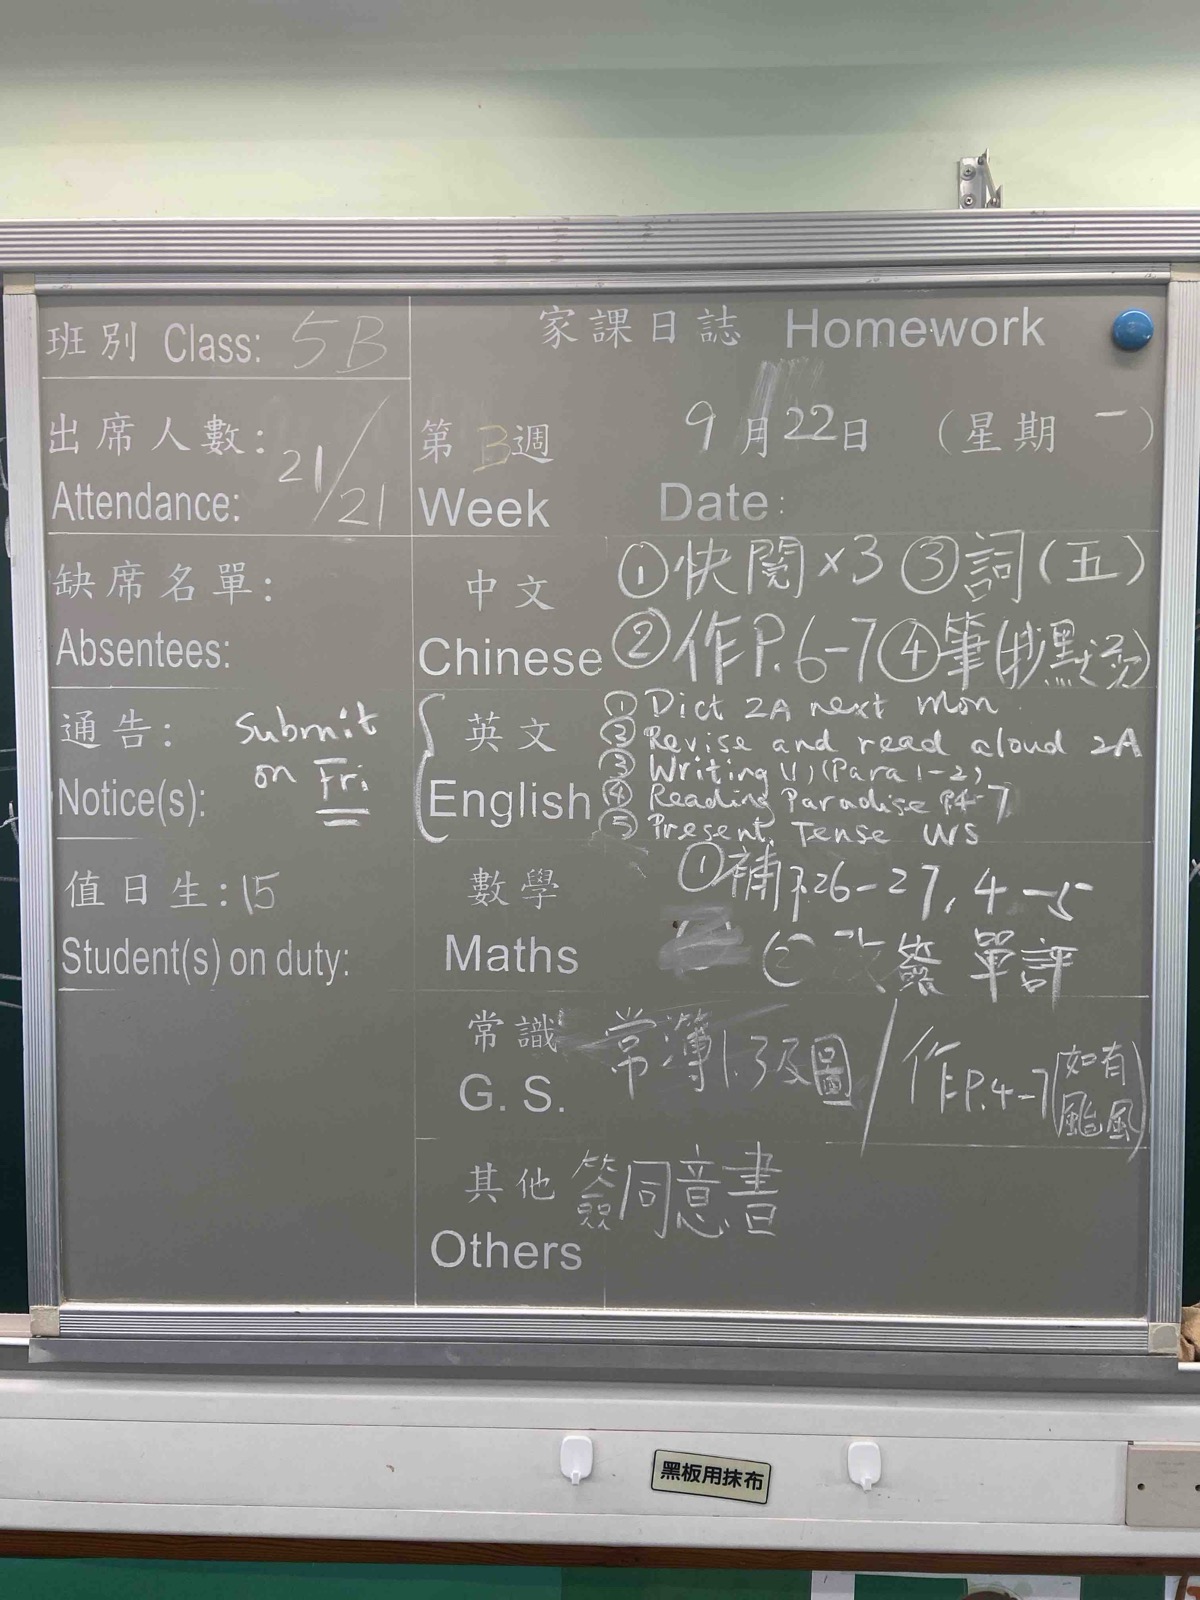 班別 Class: 5B
家課日誌 Homework
出席人數: 21/21
Attendance:
第 B 週 9月22日 (星期一)
Week Date:
缺席名單:
Absentees:
中文 ①快閱×3 ③詞(五)
Chinese ②作P.6-7 ④筆(抄默
通告: Submit on Fri
Notice(s):
英文
English
① Dict 2A next Mon
② Revise and read aloud 2A
③ Writing U1 (Para 1-2)
④ Reading Paradise P4-7
⑤ Present Tense WS
值日生: 15
Student(s) on duty:
數學 ①補P.26-27, 4-5
Maths ② 改簽單評
常識 常簿1.3及圖/作P.4-7(如有颱風)
G. S.
其他 簽同意書
Others
黑板用抹布